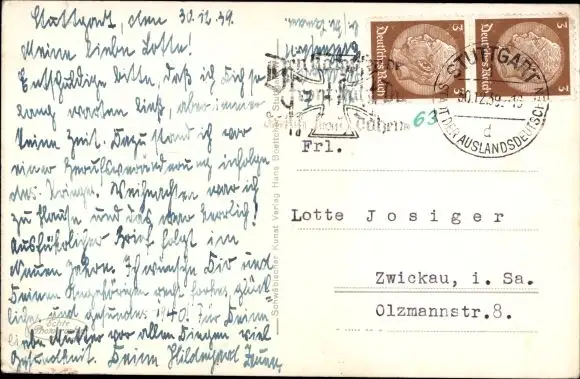 Stuttgart, den 30.12.39.
Meine liebe Lotte!
Entschuldige bitte, daß ich Dich so
lang warten ließ, aber immer
keine Zeit. Dazu stand ich vor
einer Berufsveränderung infolge
des Krieges. Weihnachten war ich
zu Hause und das war herrlich!
Ausführlicher Brief folgt im
Neuen Jahre. Ich wünsche Dir und
Deinen Angehörigen recht frohes, glück-
liches und gesundes 1940. Für Deine
liebe Mutter vor allen Dingen viel
Gesundheit. Deine Hildegard
Schwäbischer Kunst Verlag Hans Boettcher, Stu
Echte
Deutsches Reich 3
Deutsches Reich 3
STUTTGART
30.12.39
d
STADT DER AUSLANDSDEUTSCHEN
63
Frl.
Lotte Josiger
Zwickau, i. Sa.
Olzmannstr.8.